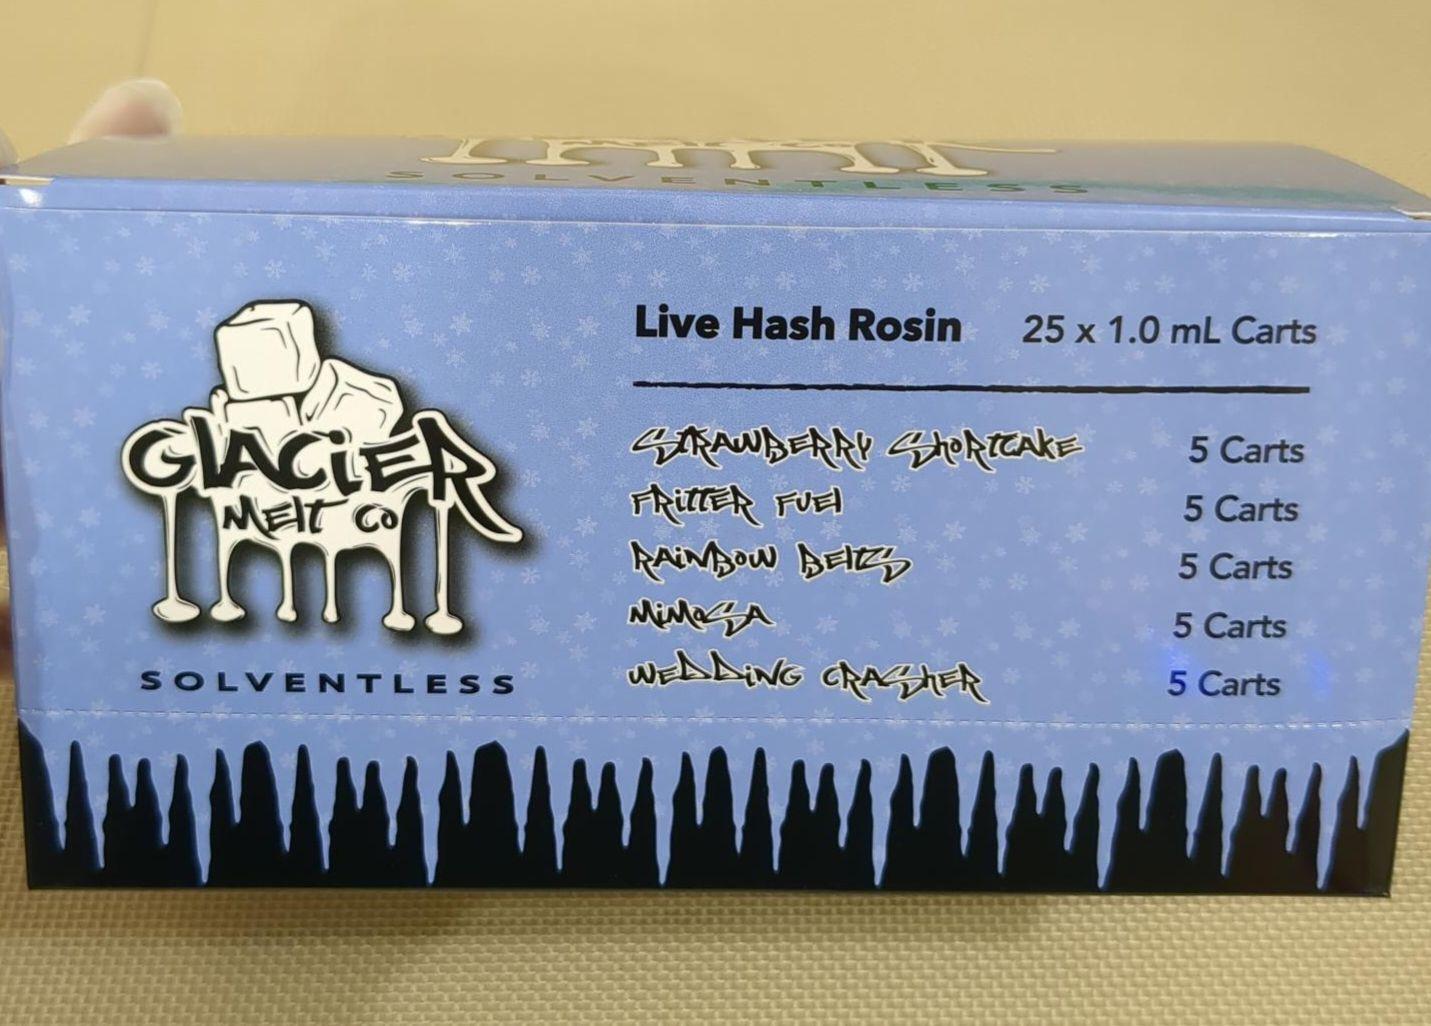 SOLVENTLESS
GLACIER
MELT CO
SOLVENTLESS
Live Hash Rosin 25 x 1.0 mL Carts
STRAWBERRY SHORTCAKE 5 Carts
FRITTER FUEL 5 Carts
RAINBOW BELTS 5 Carts
MIMOSA 5 Carts
WEDDING CRASHER 5 Carts